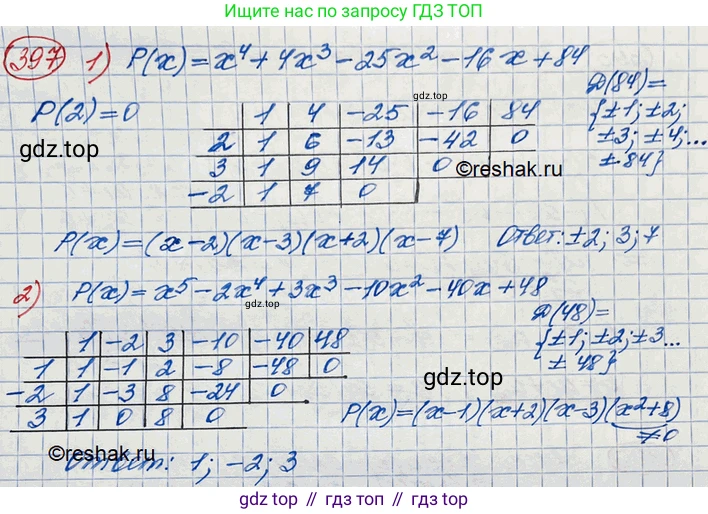 Ищите нас по запросу ГДЗ ТОП
397 1) P(x)=x⁴+4x³-25x²-16x+84
P(2)=0
Д(84)=
{±1; ±2;
±3; ±4;...
±84}
1 4 -25 -16 84
2 1 6 -13 -42 0
3 1 9 14 0
-2 1 7 0
gdz.top
gdz.top
©reshak.ru
P(x)=(x-2)(x-3)(x+2)(x-7) Ответ: ±2; 3; 7
2) P(x)=x⁵-2x⁴+3x³-10x²-40x+48
Д(48)=
{±1; ±2; ±3...
±48}
1 -2 3 -10 -40 48
1 1 -1 2 -8 -48 0
-2 1 -3 8 -24 0
3 1 0 8 0
gdz.top
P(x)=(x-1)(x+2)(x-3)(x²+8)
≠0
©reshak.ru
Ответ: 1; -2; 3
gdz.top // гдз.топ // gdz.top